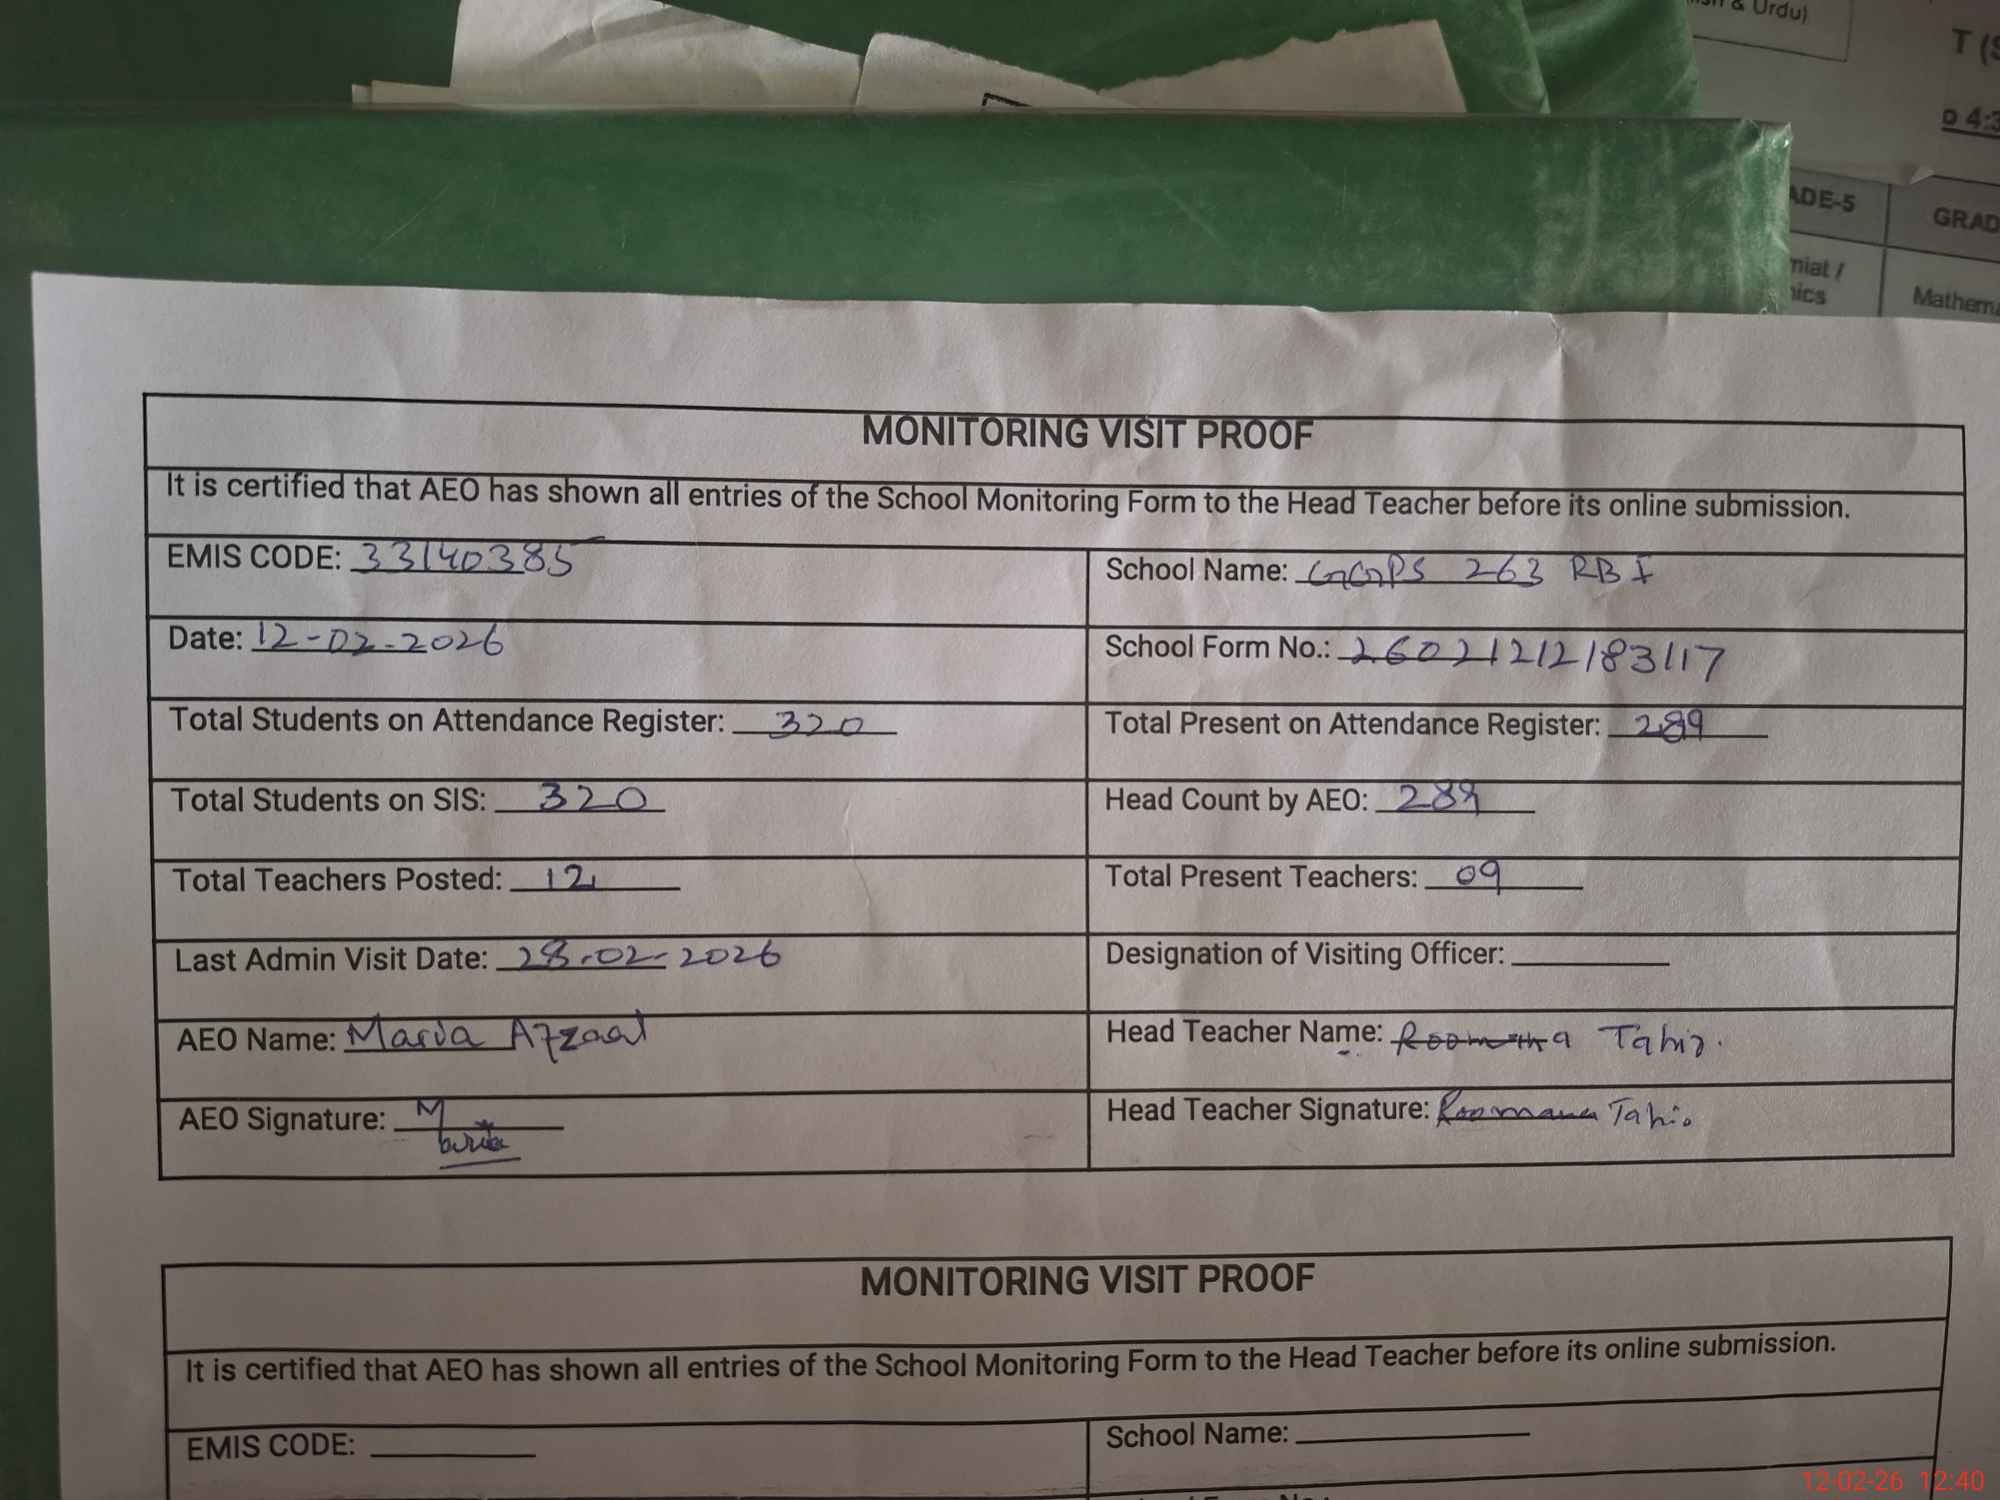 & Urdu)
T (S
o 4:3
ADE-5
GRAD
miat /
nics
Mathema
MONITORING VISIT PROOF
It is certified that AEO has shown all entries of the School Monitoring Form to the Head Teacher before its online submission.
EMIS CODE: 33140385
School Name: GGPS 263 RB I
Date: 12-02-2026
School Form No.: 26021212183117
Total Students on Attendance Register: 320
Total Present on Attendance Register: 289
Total Students on SIS: 320
Head Count by AEO: 289
Total Teachers Posted: 12
Total Present Teachers: 09
Last Admin Visit Date: 28-02-2026
Designation of Visiting Officer:
AEO Name: Maria Afzaal
Head Teacher Name: Tahir.
AEO Signature: Maria
Head Teacher Signature: Roomana Tahir
MONITORING VISIT PROOF
It is certified that AEO has shown all entries of the School Monitoring Form to the Head Teacher before its online submission.
EMIS CODE:
School Name:
12-02-26 12:40